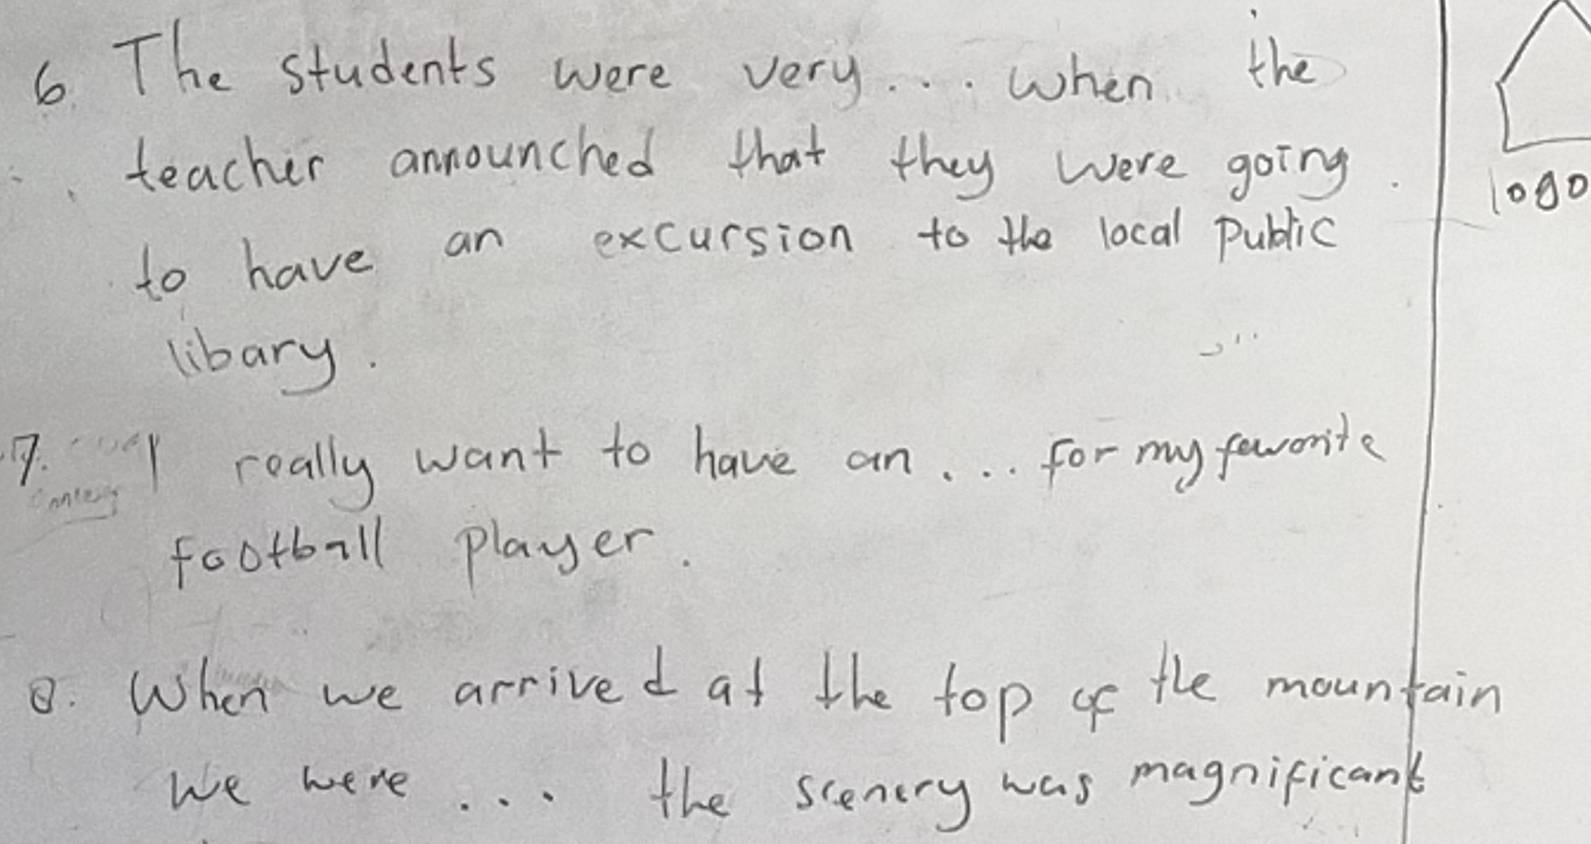 6. The students were very... when the
teacher announched that they were going
to have an excursion to the local public
libary.
7. I really want to have an ... for my favorite
football player.
8. When we arrived at the top of the mountain
we were ... the scenery was magnificant
logo